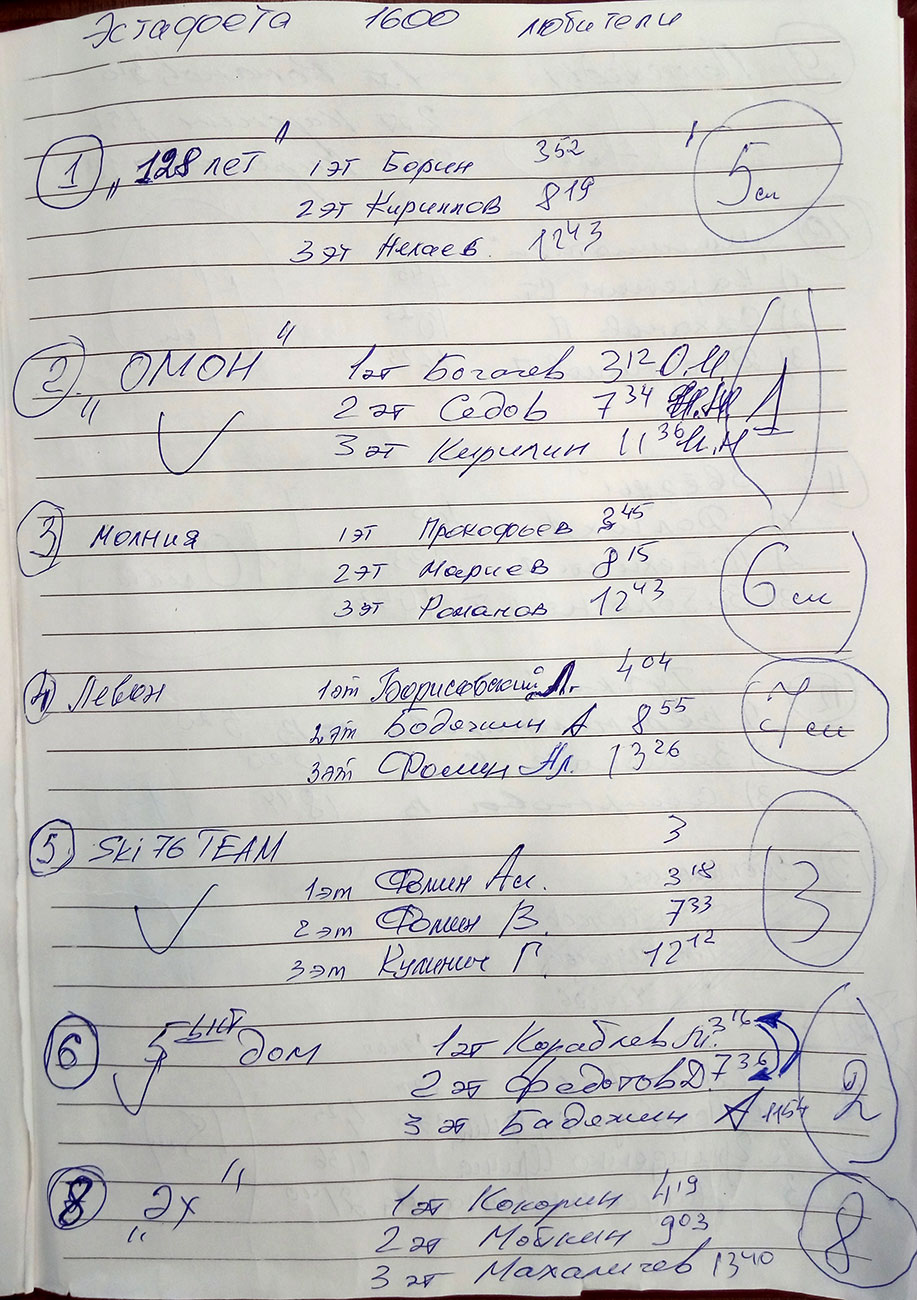 Эстафета 1600 любители
1 "128 лет" 1 эт Борин 3 52 5 см
2 эт Кириллов 8 19
3 эт Нелаев. 12 43
2 "ОМОН" 1 эт Богачев 3 12 О.М 1
2 эт Седов 7 34
3 эт Кирилин 11 36 И.Н
3 Молния 1 эт Прокофьев 3 45
2 эт Мариев 8 15 6 см
3 эт Романов 12 43
4 Левон 1 эт Борисовский Л. 4 04
2 эт Бодяжин А 8 55 7 см
3 эт Фомин Ал. 13 26
5 Ski 76 TEAM 3
1 эт Фомин Ал. 3 18 3
2 эт Фомин В. 7 33
3 эт Кулинич Г. 12 12
6 5 дом 1 эт Кораблев М. 3 16
2 эт Федотов Д. 7 36 2
3 эт Бадяжин А 1154
8 "Эх" 1 эт Кокорин 4 19
2 эт Мойкин 9 03 8
3 эт Махаличев 13 40